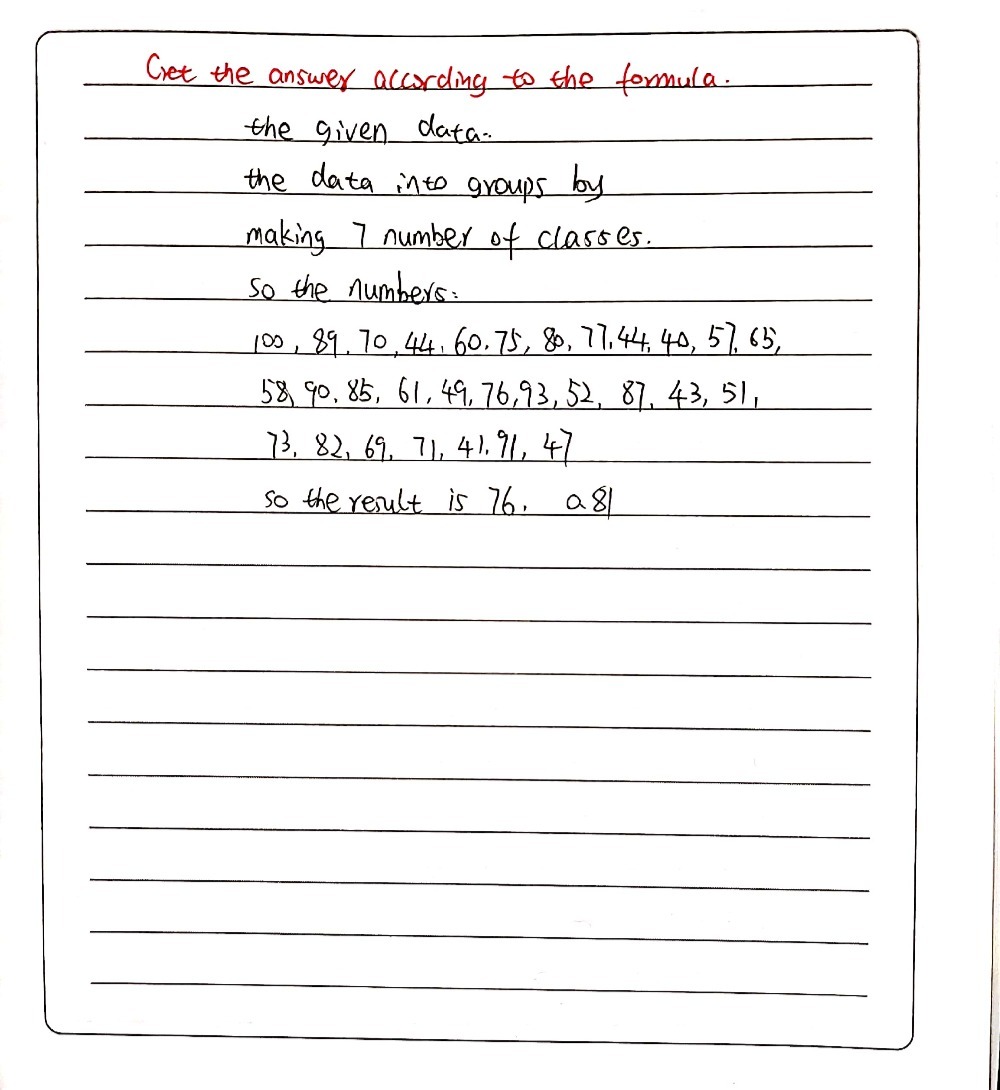 Get the answer according to the formula.
the given data..
the data into groups by
making 7 number of classes.
so the numbers:
100, 89, 70, 44, 60, 75, 80, 77, 44, 40, 57, 65,
58, 90, 85, 61, 49, 76, 93, 52, 87, 43, 51,
73, 82, 69, 71, 41, 91, 47
so the result is 76. a 81